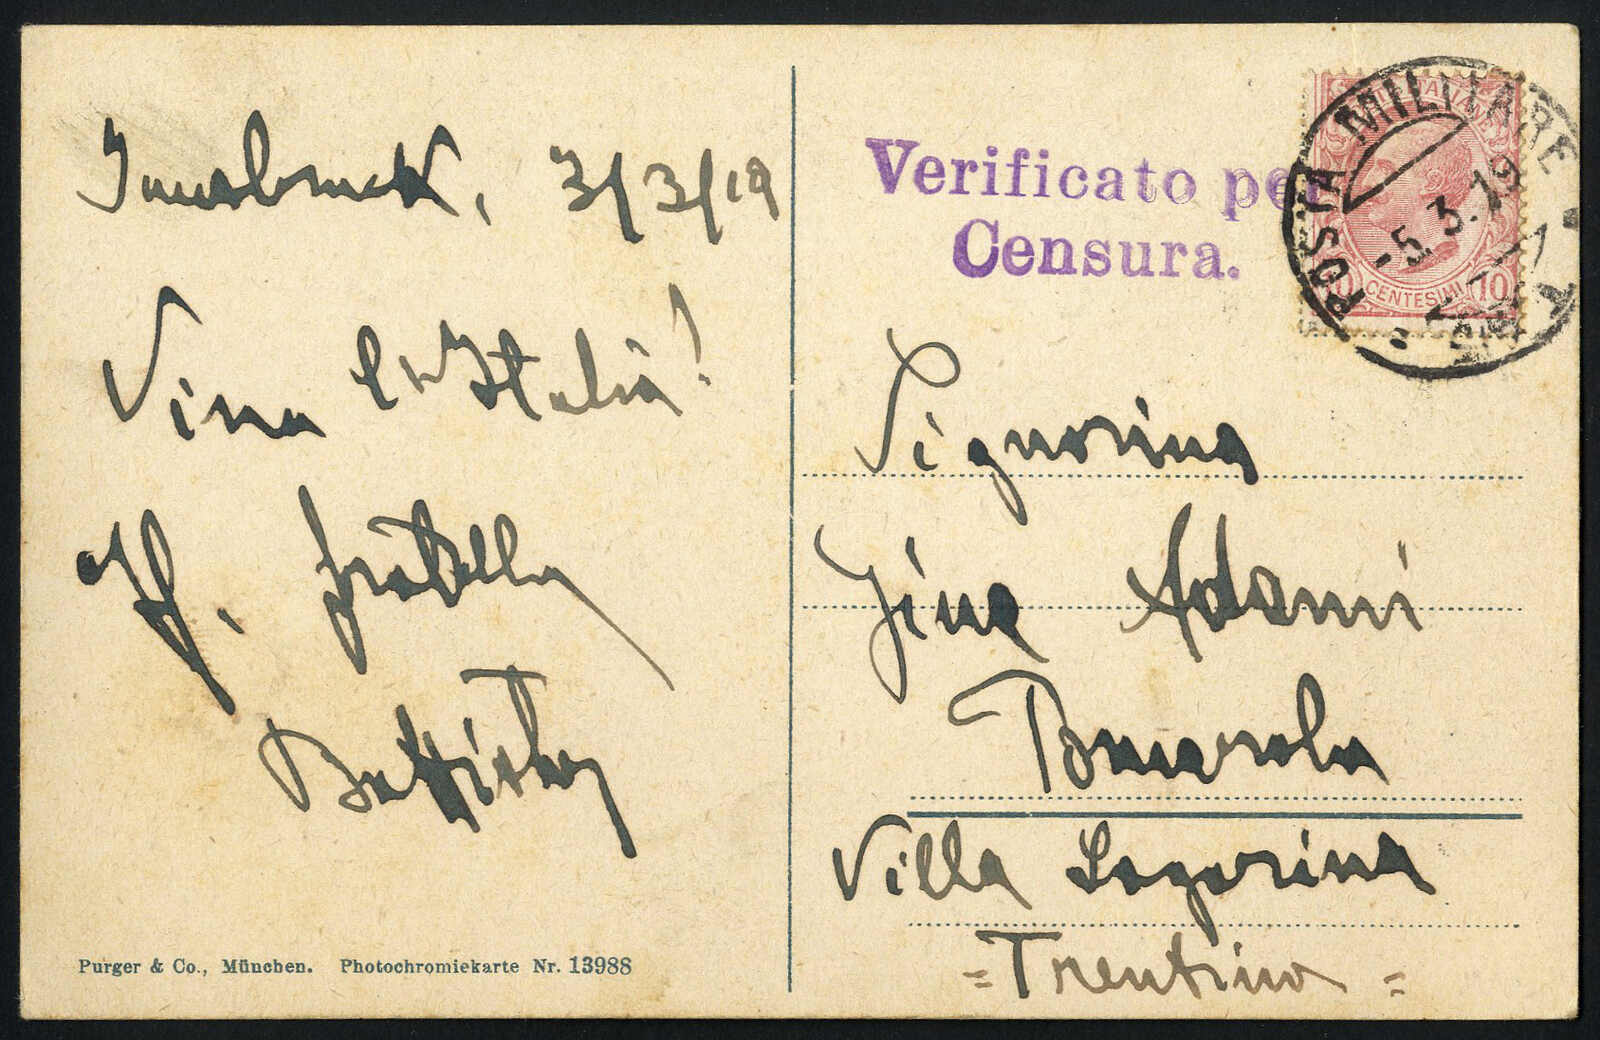 Innsbruck, 3/3/19
Viva l'Italia!
Fratelli
Battisti
Purger & Co., München. Photochromiekarte Nr. 13988
Verificato per
Censura.
POSTA MILITARE
-5. 3. 19
CENTESIMI 10
Signorina
Gina Adami
Villa Lagarina
= Trentino =